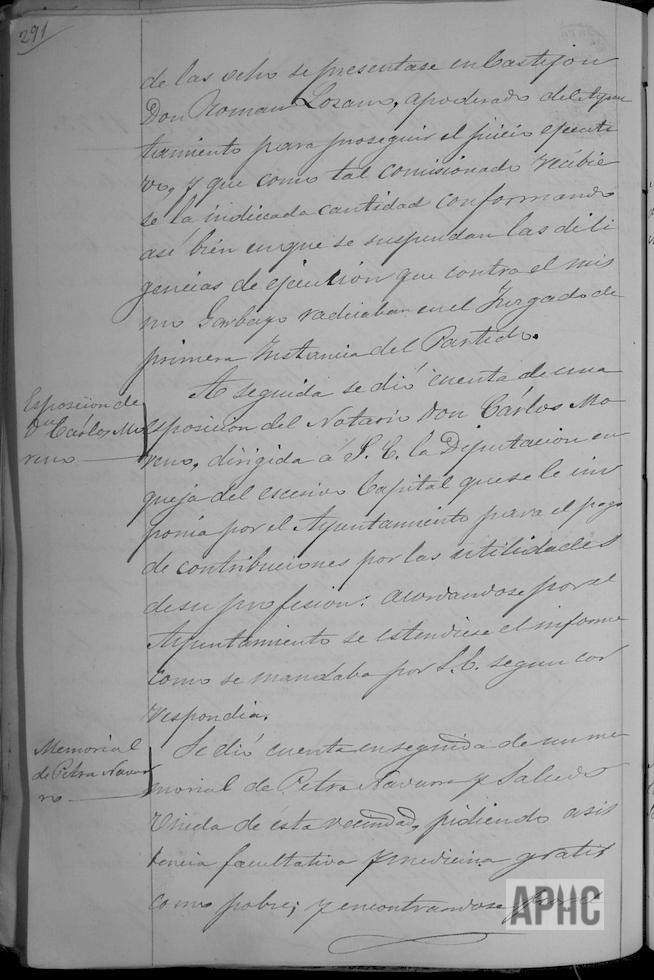 291
de las ocho se presentase en Castejon
Don Roman Lozano, apoderado del Ayun
tamiento para proseguir el juicio ejecuti
vo, y que como tal comisionado recibie
se la indicada cantidad conformando
asi bien en que se suspendan las dili
gencias de ejecucion que contra el mis
mo Garbayo radicaban en el Juzgado de
primera Instancia del Partido.
A seguida se dió cuenta de una
Esposicion de
Dn Carlos Mo
reno
esposicion del Notario Don Cárlos Mo
reno, dirigida á S. E. la Diputacion en
queja del escesivo Capital que se le im
ponia por el Ayuntamiento para el pago
de contribuciones por las utilidades
de su profesion: acordandose por el
Ayuntamiento se estendiese el informe
como se mandaba por S.E. segun cor
respondia.
Memorial
de Petra Navar
ro
Se dió cuenta en seguida de un me
morial de Petra Navarro y Salcedo
Viuda de ésta vecindad, pidiendo asis
tencia facultativa y medicina gratis
como pobre; y encontrandose por el
APHC